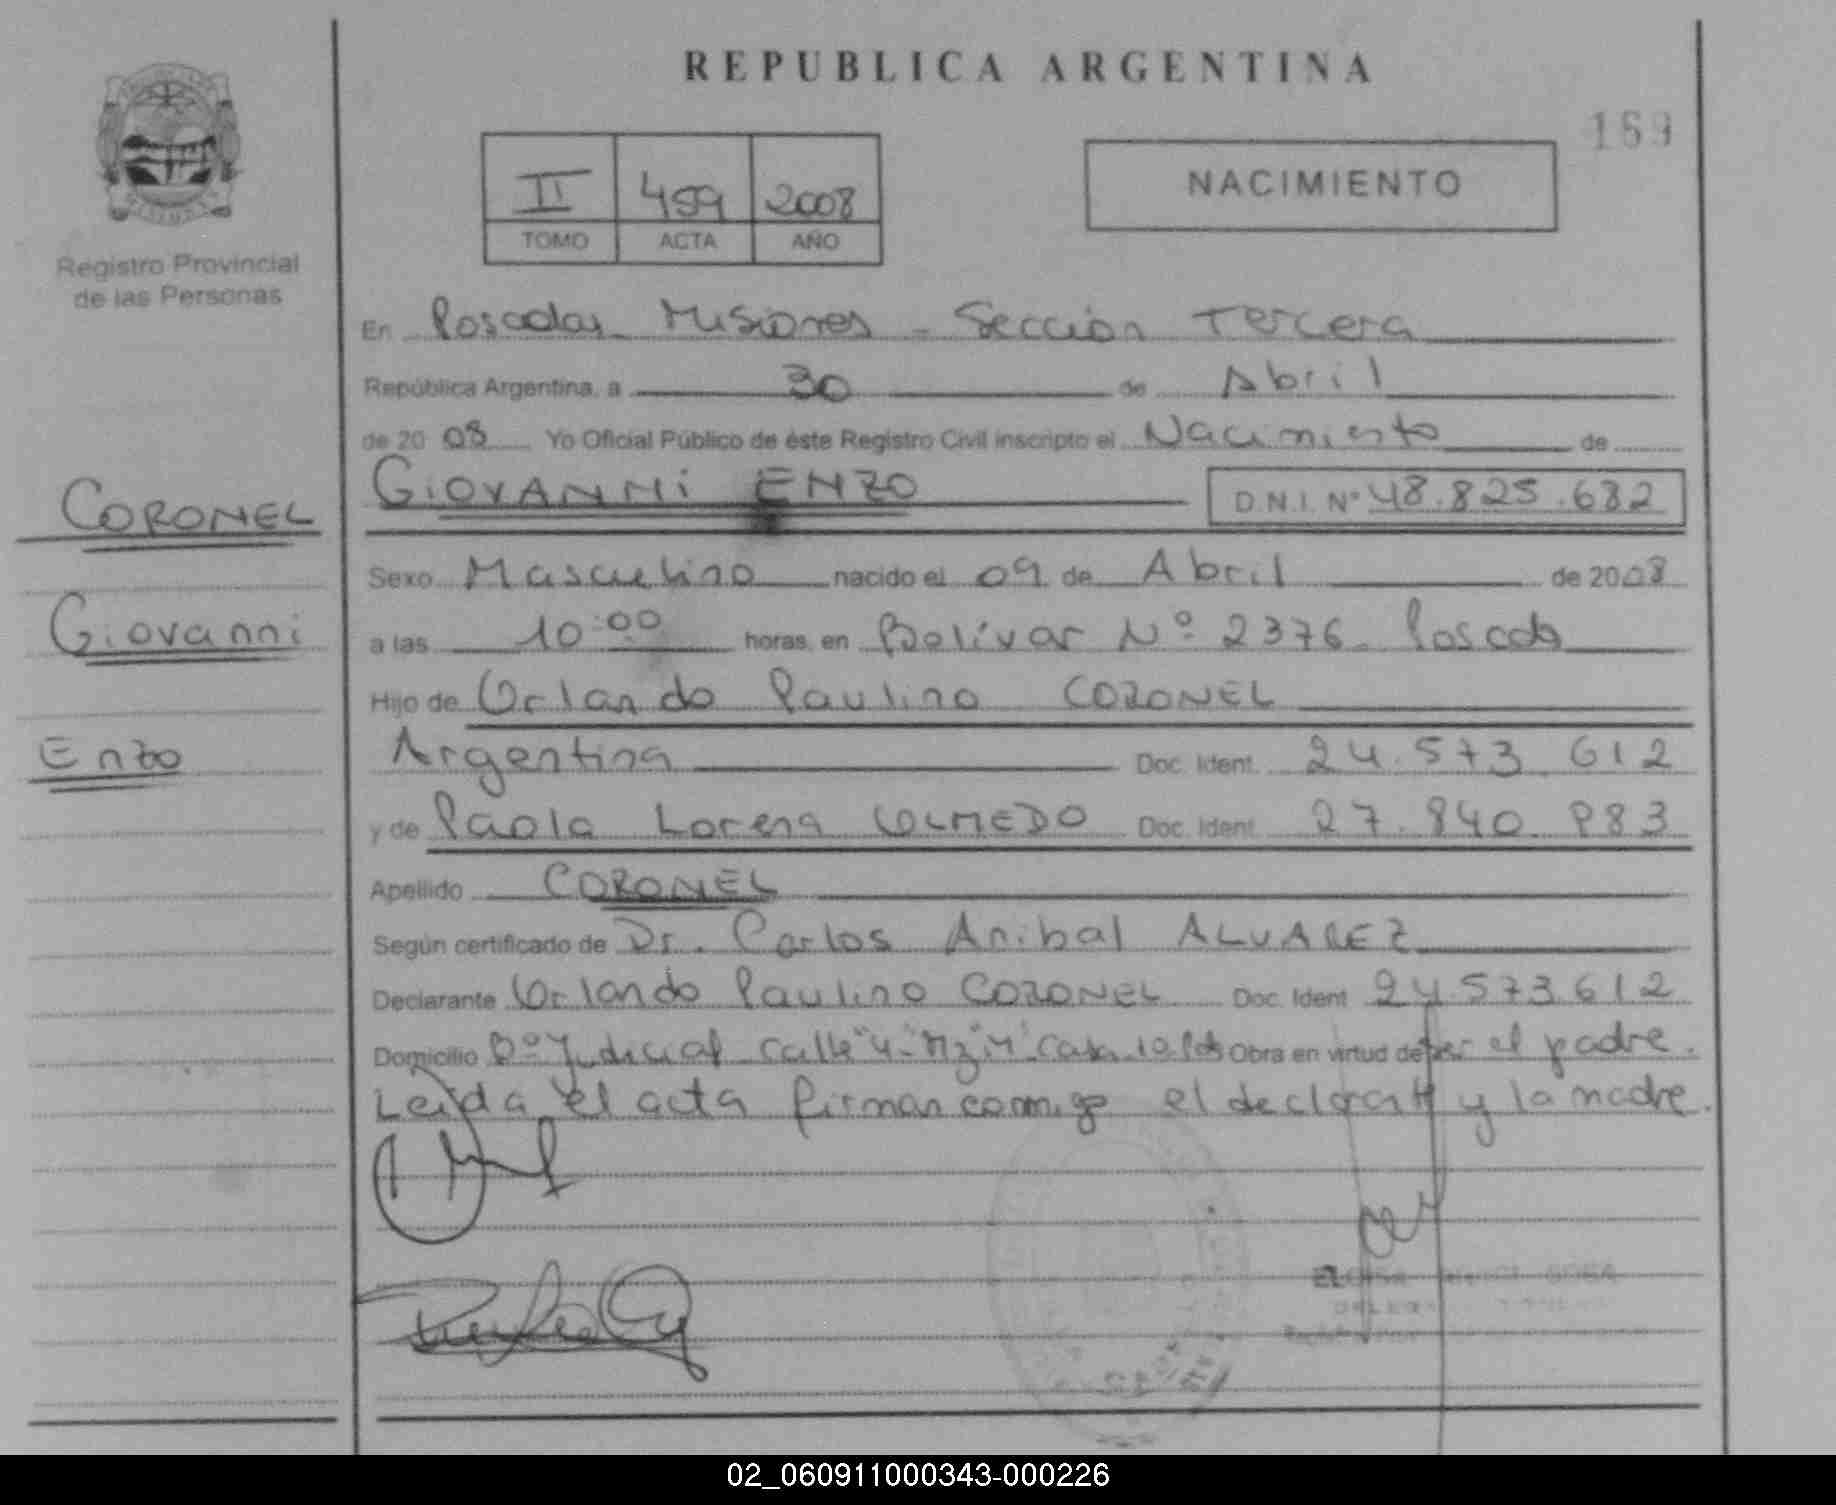 REPUBLICA ARGENTINA
169
II 459 2008
TOMO ACTA AÑO
NACIMIENTO
MISIONES
Registro Provincial
de las Personas
En Posadas Misiones - Sección Tercera
República Argentina, a 30 de Abril
de 20 08 Yo Oficial Público de éste Registro Civil inscripto el Nacimiento de
GIOVANNI ENZO D.N.I. Nº 48.825.682
CORONEL
Sexo Masculino nacido el 09 de Abril de 2008
Giovanni
a las 10:00 horas, en Bolívar Nº 2376 - Posadas
Hijo de Orlando Paulino CORONEL
Enzo
Argentina Doc. Ident. 24.573.612
y de Paola Lorena OLMEDO Doc. Ident. 27.840.983
Apellido CORONEL
Según certificado de Dr. Carlos Anibal ALVAREZ
Declarante Orlando Paulino CORONEL Doc. Ident. 24.573.612
Domicilio Bº Judicial calle "4" Mz "M" casa 10 Pdas Obra en virtud de ser el padre.
Leída el acta firman conmigo el declarante y la madre.
SOSA
02_060911000343-000226